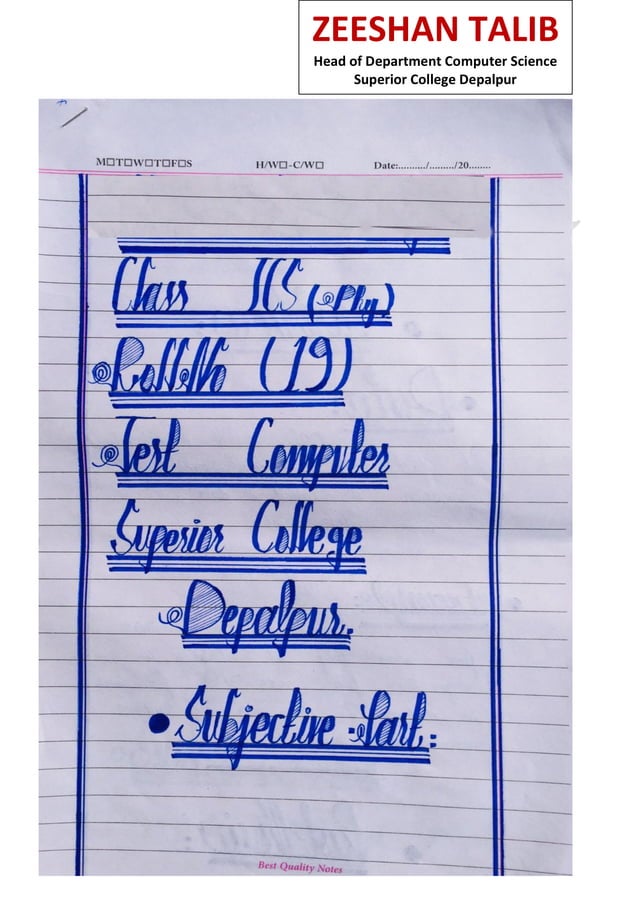 ZEESHAN TALIB
Head of Department Computer Science
Superior College Depalpur
M☐T☐W☐T☐F☐S H/W☐-C/W☐ Date:........../........./20........
Class ICS (Phy.)
Roll No (19)
Test Computer
Superior College
Depalpur.
• Subjective Part:
Best Quality Notes